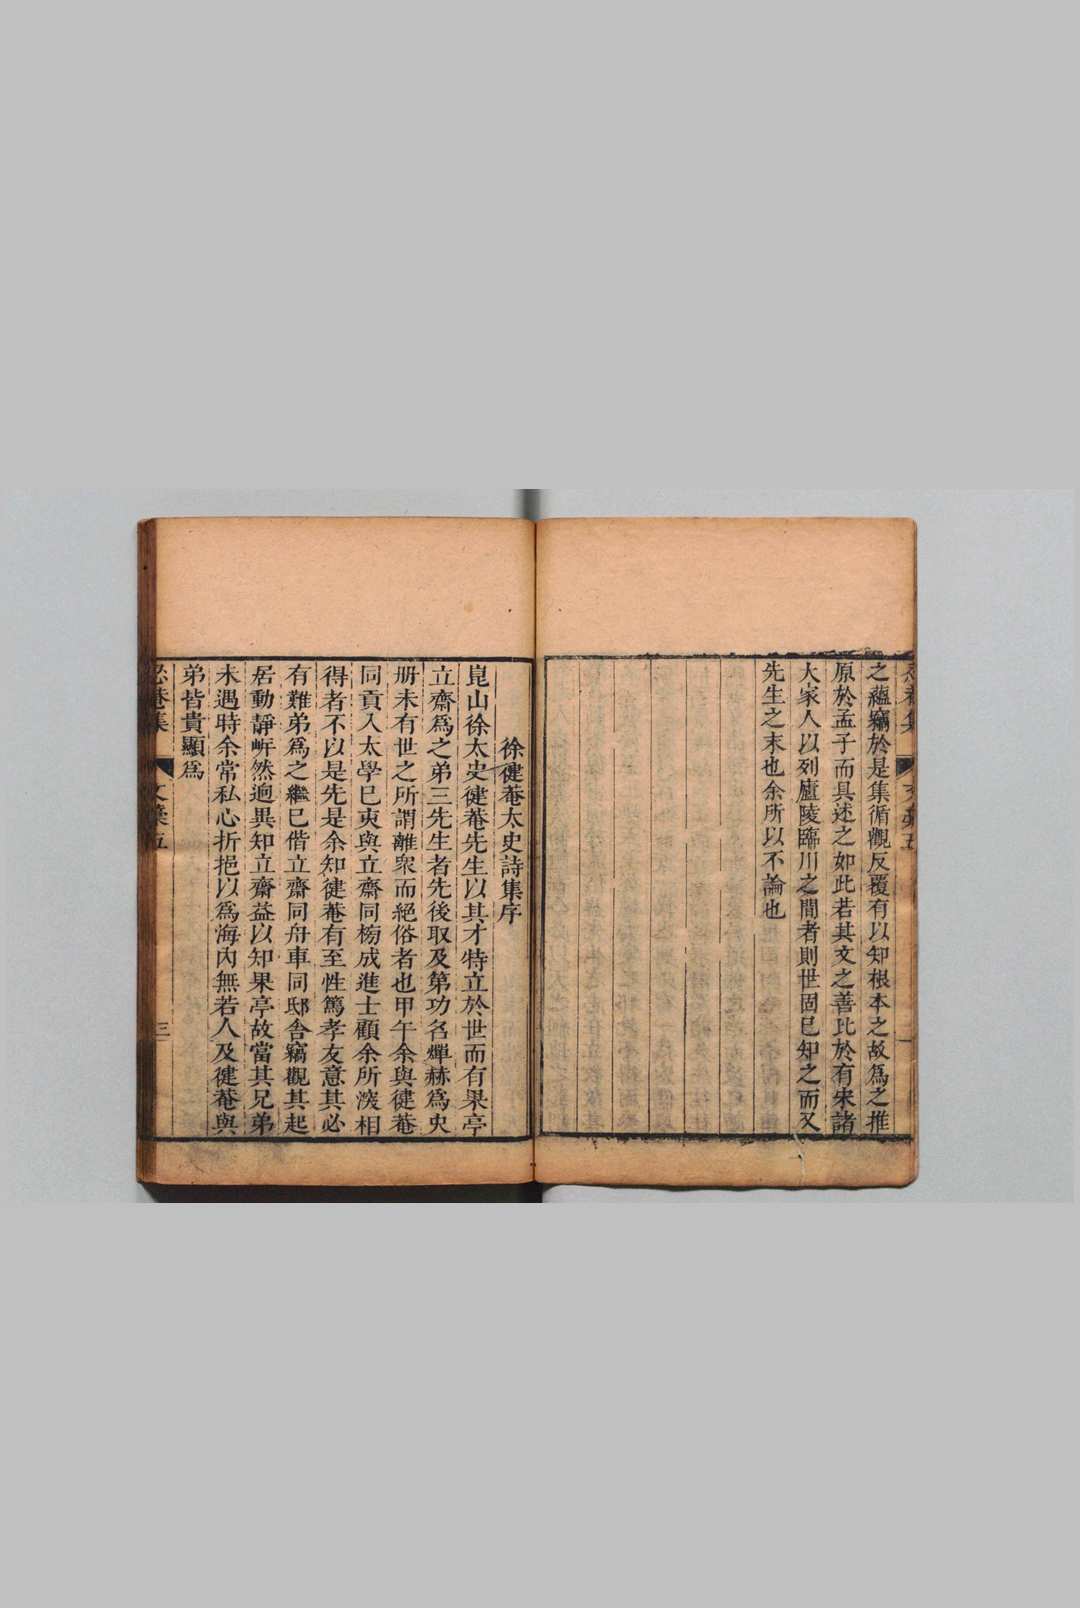 之蘊竊於是集循觀反覆有以知根本之故為之推
原於孟子而具述之如此若其文之善比於有宋諸
大家人以列廬陵臨川之間者則世固已知之而又
先生之末也余所以不論也
徐健菴太史詩集序
崑山徐太史健菴先生以其才特立於世而有果亭
立齋為之弟三先生者先後取及第功名燀赫為史
册未有世之所謂離衆而絕俗者也甲午余與健菴
同貢入太學已𠅤與立齋同榜成進士顧余所湥相
得者不以是先是余知健菴有至性篤孝友意其必
有難弟為之繼已偕立齋同舟車同邸舍竊觀其起
居動靜㟁然逈異知立齋益以知果亭故當其兄弟
未遇時余常私心折挹以為海内無若人及健菴與
弟皆貴顯為
集 文稾五 三